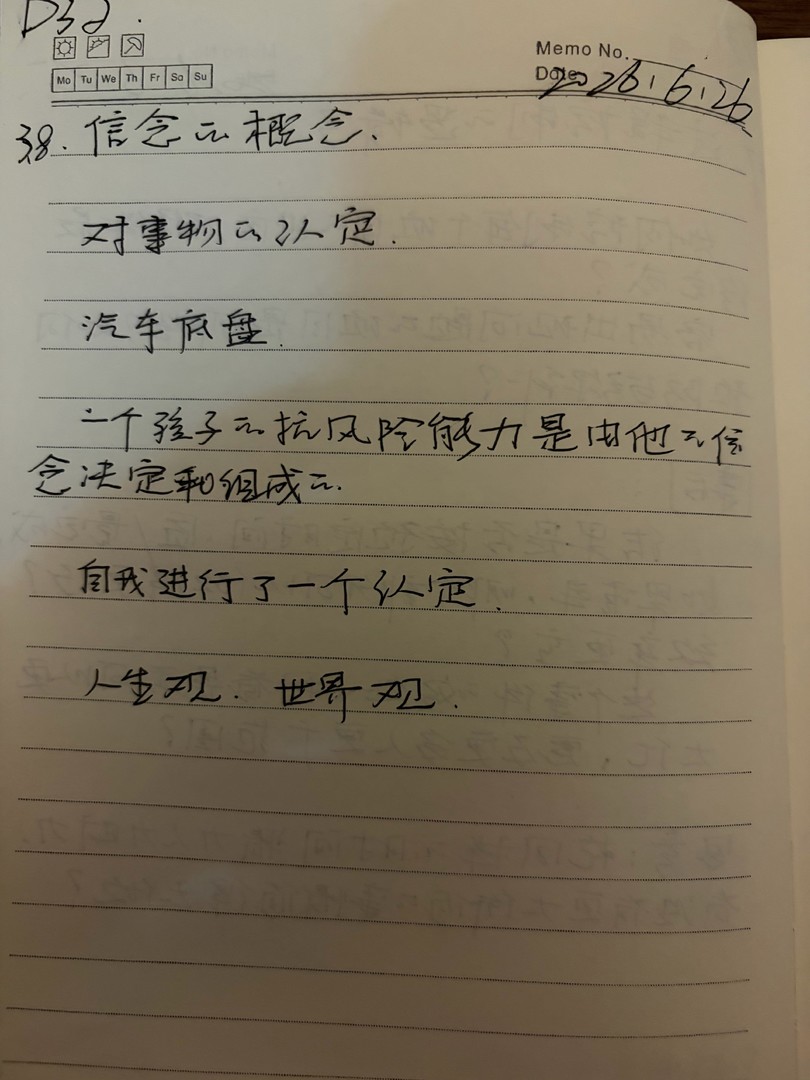 D32.
Memo No.
Mo Tu We Th Fr Sa Su
Date 2026.6.26
38. 信念的概念.
对事物的认定.
汽车底盘.
一个孩子的抗风险能力是由他的信
念决定和组成的.
自我进行了一个认定.
人生观. 世界观.